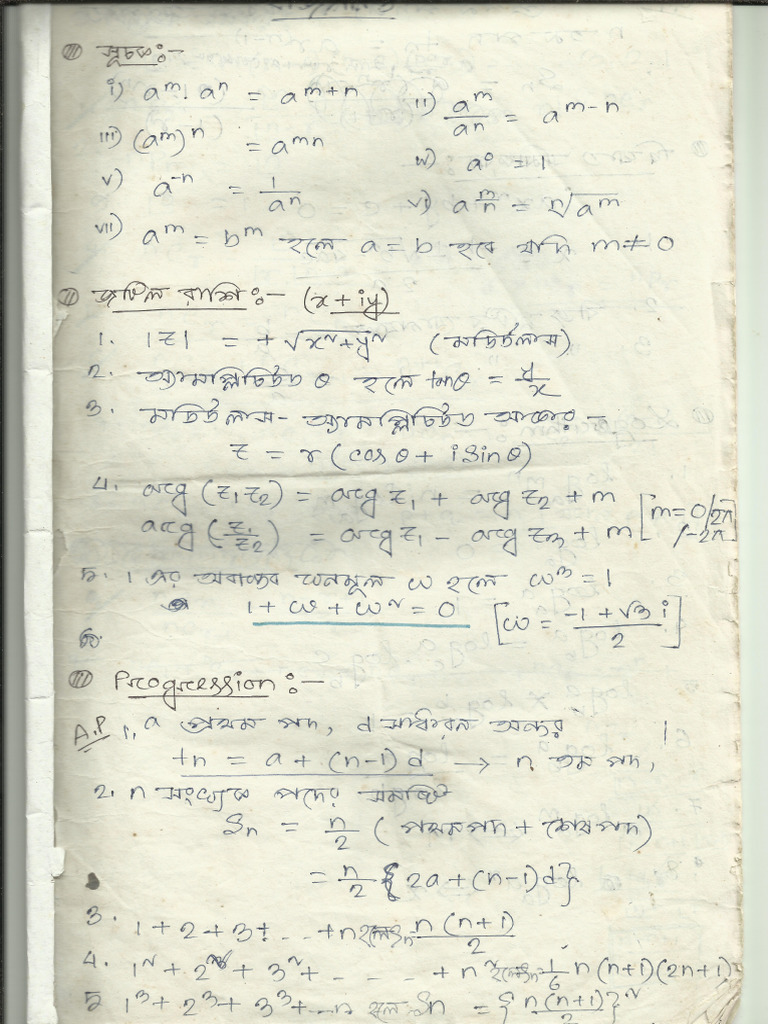 সূচক:-
i) a^m . a^n = a^(m+n) ii) a^m/a^n = a^(m-n)
iii) (a^m)^n = a^(mn) iv) a^0 = 1
v) a^(-n) = 1/a^n vi) a^(m/n) = n√a^m
vii) a^m = b^m হলে a = b হবে যদি m ≠ 0
জটিল রাশি:- (x + iy)
1. |z| = +√(x²+y²) (মডিউলাস)
2. অ্যামপ্লিচিউড θ হলে tanθ = y/x
3. মডিউলাস-অ্যামপ্লিচিউড আকার -
z = r (cosθ + i sinθ)
4. arg (z₁z₂) = arg z₁ + arg z₂ + m [m = 0/2π
arg (z₁/z₂) = arg z₁ - arg z₂ + m /-2π]
5. 1 এর অবাস্তব ঘনমূল ω হলে ω³ = 1
1 + ω + ω² = 0 [ω = (-1 + √3 i)/2]
Progression:-
A.P 1. a প্রথম পদ, d সাধারন অন্তর
tn = a + (n-1) d → n তম পদ,
2. n সংখ্যক পদের সমষ্টি
Sn = n/2 (প্রথমপদ + শেষপদ)
= n/2 {2a + (n-1) d}
3. 1 + 2 + 3 + ... + n হলে Sn = n(n+1)/2
4. 1² + 2² + 3² + - . . . + n² হলে Sn = 1/6 n (n+1) (2n+1)
5 1³ + 2³ + 3³ + ... n হলে Sn = {n(n+1)/2}²